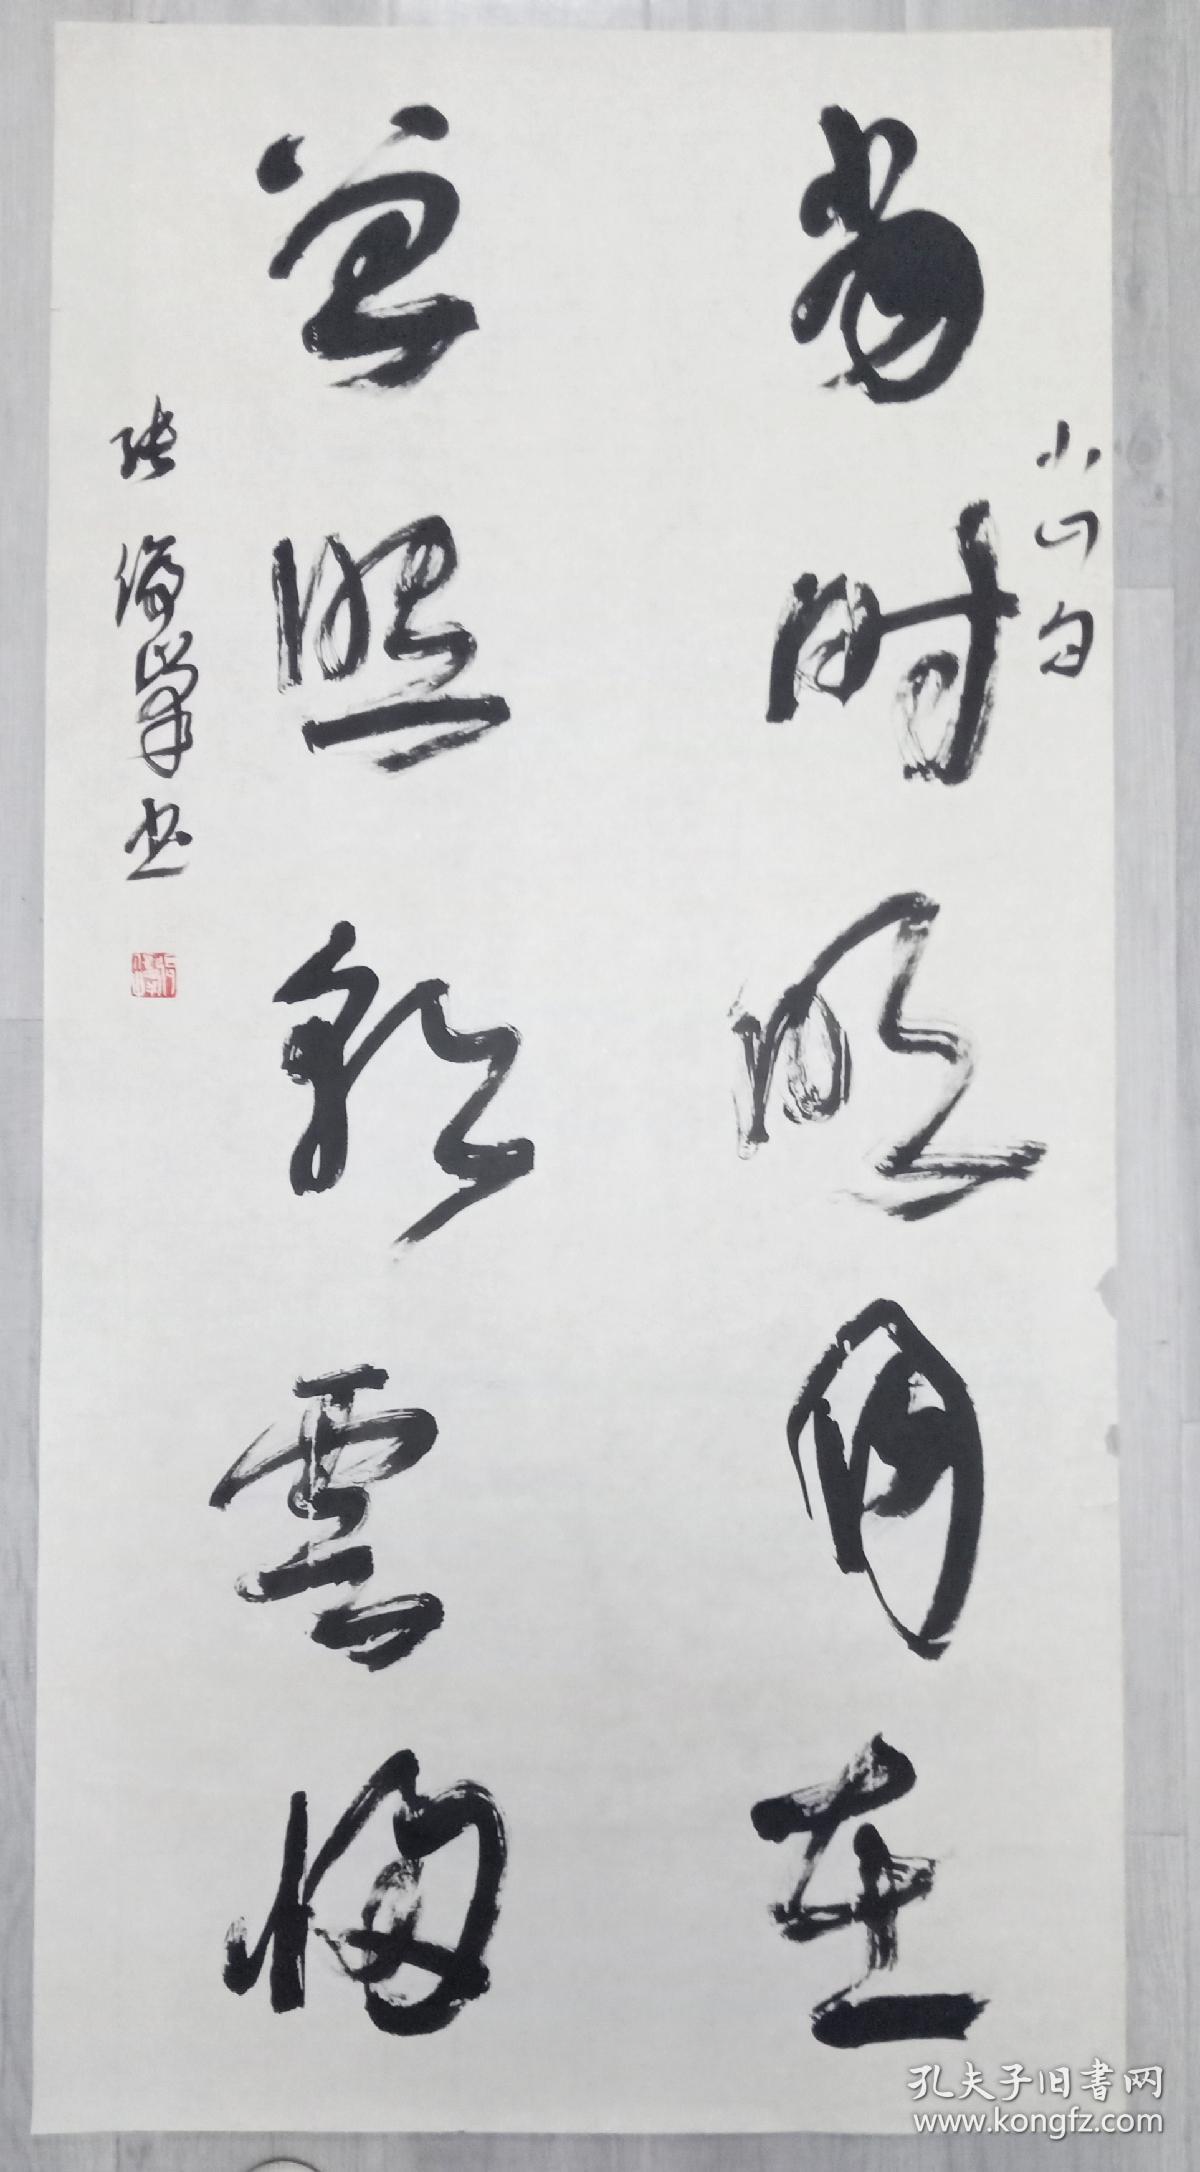 小山句
当时明月在
曾照彩雲归
张
峯书
孔夫子旧書网
www.kongfz.com